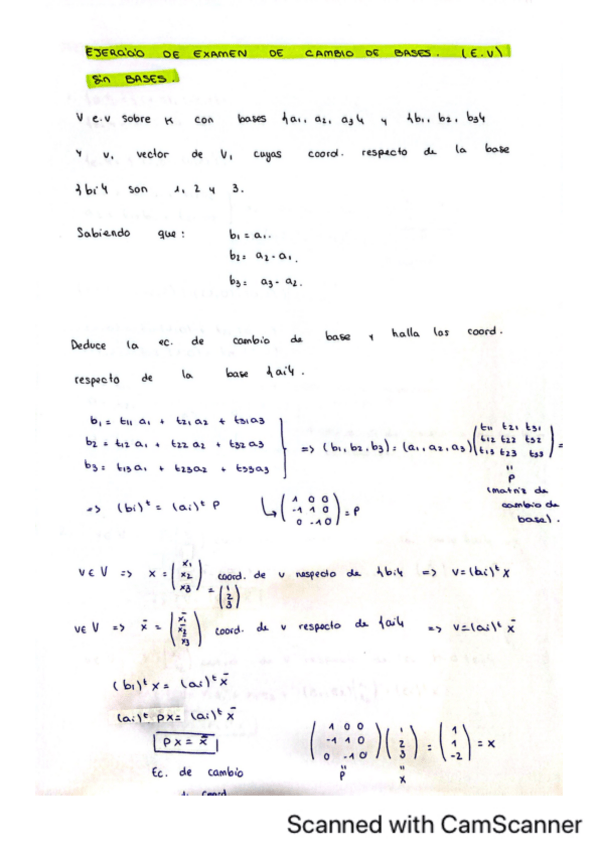 EJERCICIO DE EXAMEN DE CAMBIO DE BASES. (E.V)
Sin BASES.
V e.v sobre K con bases {a1, a2, a3} y {b1, b2, b3}
y v, vector de V, cuyas coord. respecto de la base
{bi} son 1, 2 y 3.
Sabiendo que: b1 = a1.
b2 = a2 - a1.
b3 = a3 - a2.
Deduce la ec. de cambio de base y halla las coord.
respecto de la base {ai}.
b1 = t11 a1 + t21 a2 + t31 a3
b2 = t12 a1 + t22 a2 + t32 a3
b3 = t13 a1 + t23 a2 + t33 a3
=> (b1, b2, b3) = (a1, a2, a3) (t11 t21 t31
t12 t22 t32
t13 t23 t33) =
"
P
(matriz de
cambio de
base).
=> (bi)^t = (ai)^t P
↳ (1 0 0
-1 1 0
0 -1 0) = P
v ∈ V => x = (x1
x2
x3) coord. de v respecto de {bi} => v = (bi)^t x
= (1
2
3)
v ∈ V => x̄ = (x̄1
x̄2
x̄3) coord. de v respecto de {ai} => v = (ai)^t x̄
(bi)^t x = (ai)^t x̄
(ai)^t Px = (ai)^t x̄
Px = x̄
Ec. de cambio
de coord
(1 0 0
-1 1 0
0 -1 0) (1
2
3) = (1
1
-2) = x
"
P
"
x
Scanned with CamScanner